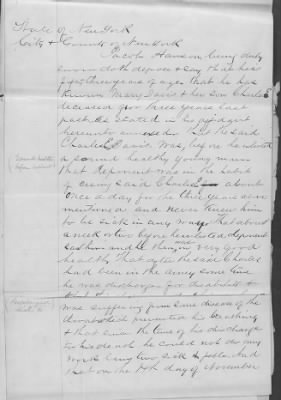 State of New York
City & County of New York
Jacob Hanson being duly
sworn doth depose & say that he is
years of age that he has
known Mary Davis & her son Charles E
deceased for three years last
past as stated in the affidavit
hereunto annexed that the said
Charles E Davis was before he enlisted
a sound healthy young man
that deponent was in the habit
of seeing said Charles about
once a day for the three years above
mentioned and never knew him
to be sick in any way that about
a week or two before he enlisted deponent
saw him and he then was in very good
health that after the said Charles
had been in the army some time
he was discharged for disability &
was suffering from some disease of the
throat which prevented his breathing
& that since the time of his discharge
to his death he could not do any
work being two sick & feble and
that on the 14th day of November